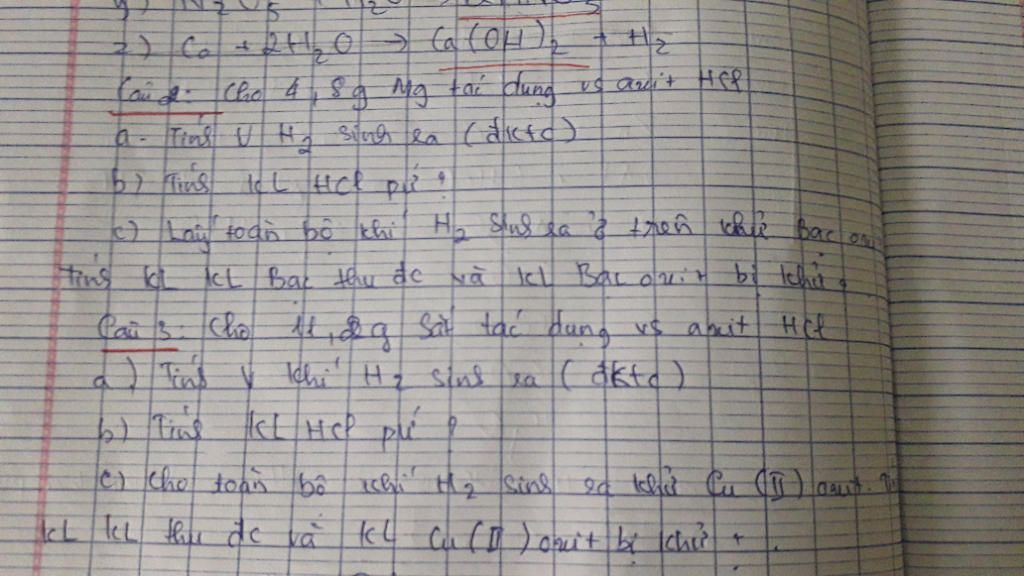 z) Ca + 2H₂O → Ca(OH)₂ + H₂
Câu 2: Cho 4,8g Mg tác dụng vs axit HCl
a - Tính V H₂ sinh ra (đktc)
b) Tính KL HCl pứ ?
c) Lấy toàn bộ khí H₂ sinh ra ở trên khử Bạc oxi
Tính KL KL Bạc thu đc và KL Bạc oxit bị khử.
Câu 3: Cho 11,2g Sắt tác dụng vs axit HCl
a) Tính V khí H₂ sinh ra (đktc)
b) Tính KL HCl pứ ?
c) Cho toàn bộ khí H₂ sinh ra khử Cu (II) oxit.
KL KL thu đc và KL Cu(II) oxit bị khử.